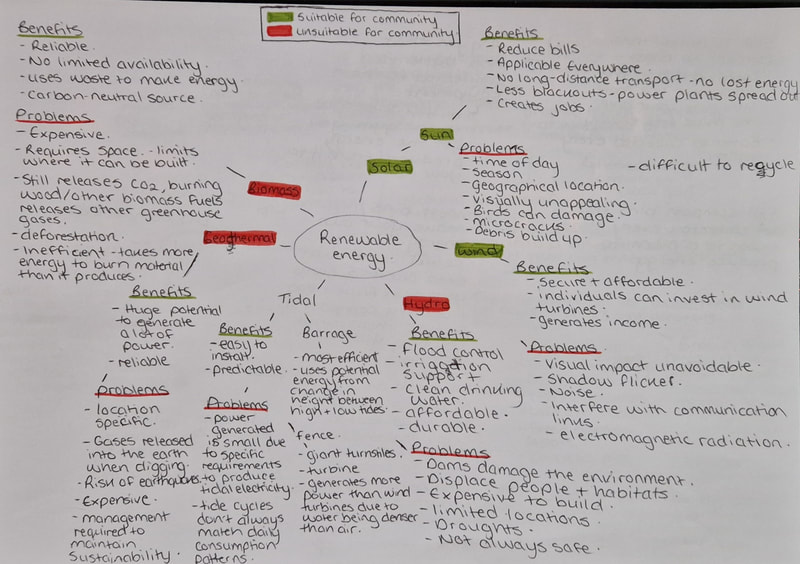 Suitable for community
unsuitable for community
Benefits
- Reliable.
- No limited availability.
- uses waste to make energy
- carbon-neutral source.
Problems
- Expensive.
- Requires space - limits
where it can be built.
- Still releases CO2, burning
wood/other biomass fuels
releases other greenhouse
gases.
- deforestation.
- Inefficient - takes more
energy to burn material
than it produces.
Biomass
Solar
Sun
Benefits
- Reduce bills
- Applicable Everywhere.
- No long-distance transport - no lost energy
- Less blackouts - power plants spread out
- Creates jobs.
Problems
- time of day
- season
- geographical location.
- visually unappealing.
- Birds can damage.
- microcracks.
- Debris build up.
- difficult to recycle
Renewable
energy.
Geothermal
Benefits
- Huge potential
to generate
a lot of
power.
- reliable
Problems
- location
specific.
- Gases released
into the earth
when digging.
- Risk of earthquakes
- Expensive.
- management
required to
maintain
Sustainability.
Tidal
Benefits
- easy to
install.
- predictable.
Problems
- power
generated
is small due
to specific
requirements
to produce
tidal electricity.
- tide cycles
don't always
match daily
consumption
patterns.
Barrage
- most efficient
- uses potential
energy from
change in
height between
high + low tides.
fence.
- giant turnstiles.
- turbine
- generates more
power than wind
turbines due to
water being denser
than air.
Hydro
Benefits
- flood control
- irrigation
support
- clean drinking
water.
- affordable.
- durable.
Problems
- Dams damage the environment.
- Displace people + habitats.
- Expensive to build.
- limited locations.
- Droughts.
- Not always safe.
Wind
Benefits
- secure + affordable.
- individuals can invest in wind
turbines.
- generates income.
Problems
- Visual impact unavoidable.
- Shadow flicker.
- Noise.
- Interfere with communication
links.
- electromagnetic radiation.